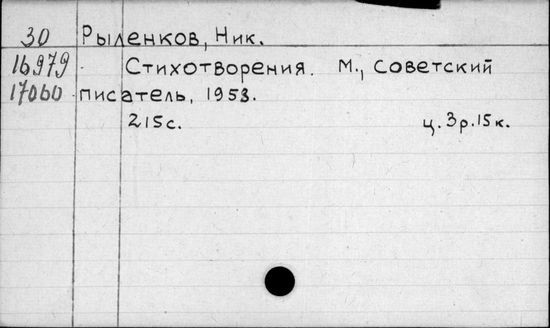 30 Рыленков, Ник.
16979 Стихотворения. М., Советский
17060 писатель, 1953.
215с. ц. 3р.15к.